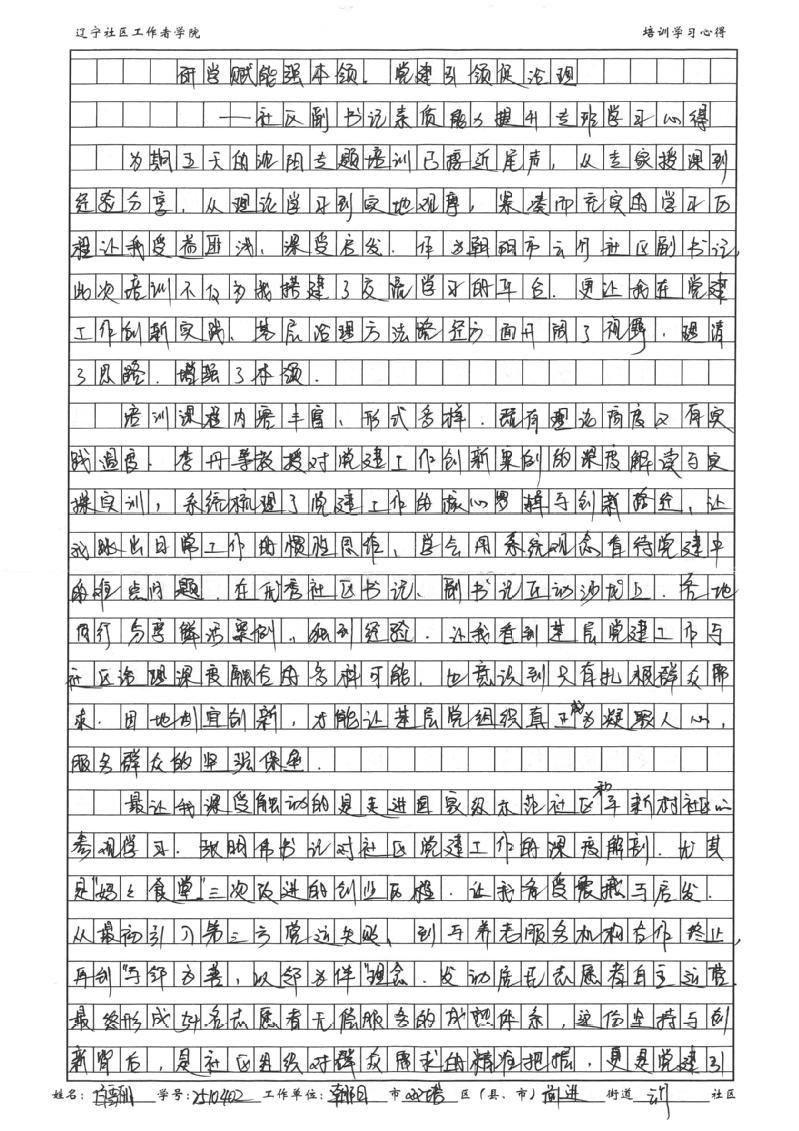 辽宁社区工作者学院 培训学习心得
研学赋能强本领,党建引领促治理
——社区副书记素质能力提升专班学习心得
为期五天的沈阳专题培训已接近尾声,从专家授课到
经验分享,从理论学习到实地观摩,紧凑而充实的学习历
程让我受益匪浅、深受启发.作为朝阳市云行社区副书记,
此次培训不仅为我搭建了交流学习的平台.更让我在党建
工作创新实践、基层治理方法路径方面开阔了视野,理清
了思路.增强了本领.
培训课程内容丰富、形式多样.既有理论高度又有实
践温度.李丹等教授对党建工作创新案例的深度解读与实
操实训,系统梳理了党建工作的核心逻辑与创新路径,让
我跳出日常工作的惯性思维、学会用系统观念看待党建中
的难点问题.在优秀社区书记、副书记互动沙龙上.各地
同行分享鲜活案例、独到经验.让我看到基层党建工作与
社区治理深度融合的多种可能.也意识到只有扎根群众需
求.因地制宜创新,才能让基层党组织真正成为凝聚人心,
服务群众的坚强保垒.
最让我深受触动的是走进国家级示范社区和平新村社区的
参观学习.张明伟书记对社区党建工作的深度解剖.尤其
是“妈妈食堂”三次改进的创业历程.让我备受震撼与启发.
从最初引入第三方营运失败、到与养老服务机构合作终止,
再到“与邻为善,以邻为伴”理念.发动居民志愿者自主运营.
最终形成54名志愿者无偿服务的成熟体系,这份坚持与创
新背后,是社区组织对群众需求的精准把握,更是党建引
姓名: 学号:2510402 工作单位:朝阳 市 双塔 区(县、市) 前进 街道 云行 社区